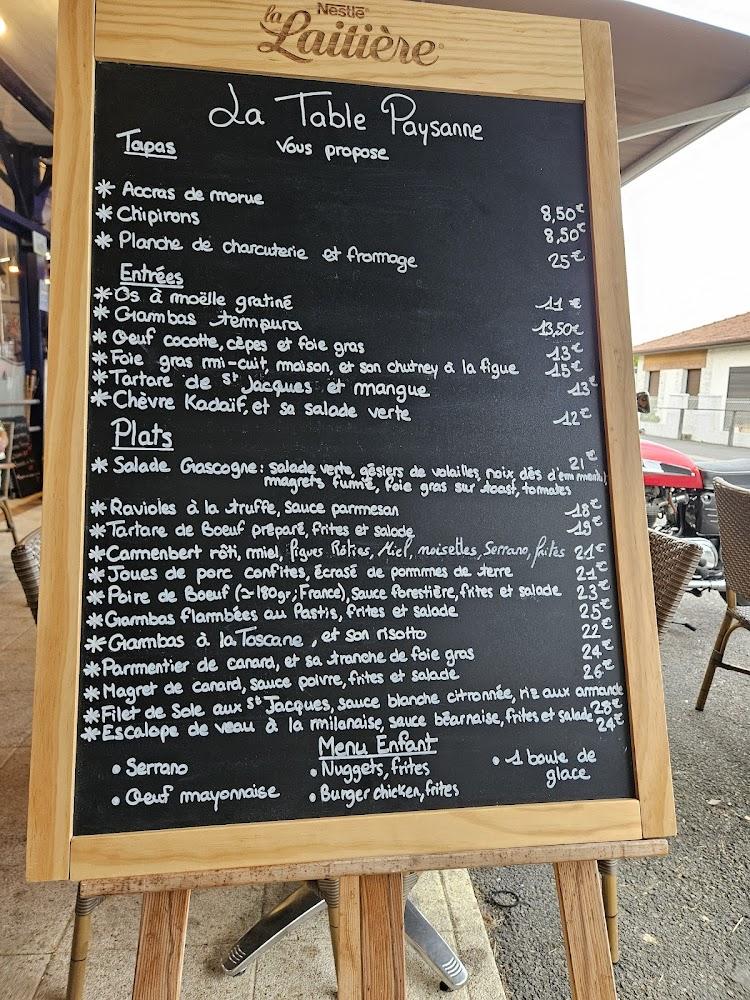 Nestlé
la Laitière
La Table Paysanne
Tapas
Vous propose
* Accras de morue 8,50€
* Chipirons 8,50€
* Planche de charcuterie et fromage 25€
Entrées
* Os à moëlle gratiné 11€
* Gambas tempura 13,50€
* Oeuf cocotte, cèpes et foie gras 13€
* Foie gras mi-cuit, maison, et son chutney à la figue 15€
* Tartare de St Jacques et mangue 13€
* Chèvre Kadaïf, et sa salade verte 12€
Plats
* Salade Gascogne : salade verte, gésiers de volailles, noix, dés d'emmental, 21€
magrets fumé, foie gras sur toast, tomates
* Ravioles à la truffe, sauce parmesan 18€
* Tartare de Boeuf préparé, frites et salade 19€
* Camenbert rôti, miel, figues Rôties, Miel, noisettes, Serrano, frites 21€
* Joues de porc confites, écrasé de pommes de terre 21€
* Poire de Boeuf (≃180gr; France), sauce forestière, frites et salade 23€
* Gambas flambées au Pastis, frites et salade 25€
* Gambas à la Toscane, et son risotto 22€
* Parmentier de canard, et sa tranche de foie gras 24€
* Magret de canard, sauce poivre, frites et salade 26€
* Filet de Sole aux St Jacques, sauce blanche citronnée, riz aux armande 28€
* Escalope de veau à la milanaise, sauce béarnaise, frites et salade 24€
Menu Enfant
• Serrano
• Oeuf mayonnaise
• Nuggets, frites
• Burger chicken, frites
• 1 boule de
glace